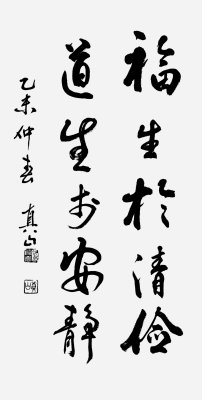 福生於清儉
道生於安靜
乙未仲春 真山